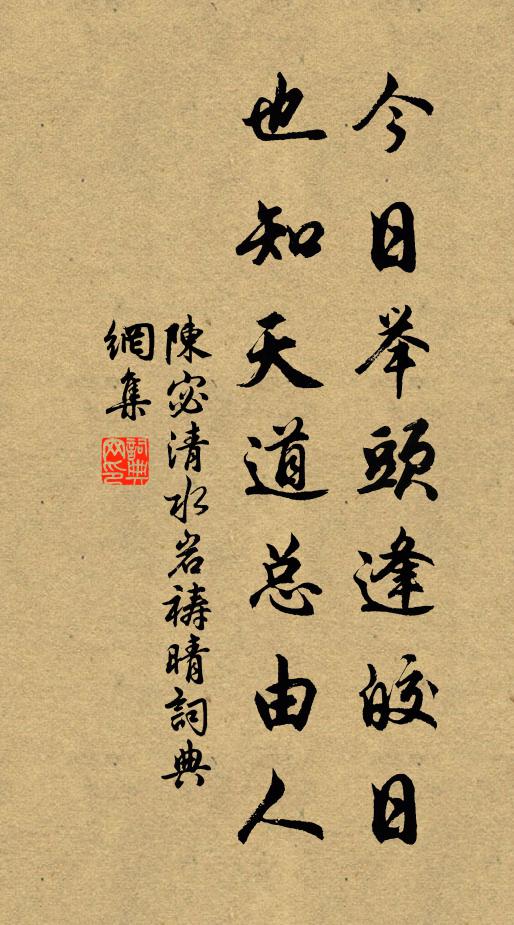 今日举頭逢皎日
也知天道总由人
陳宓清水岩禱晴詞典
網集
詞典
网印